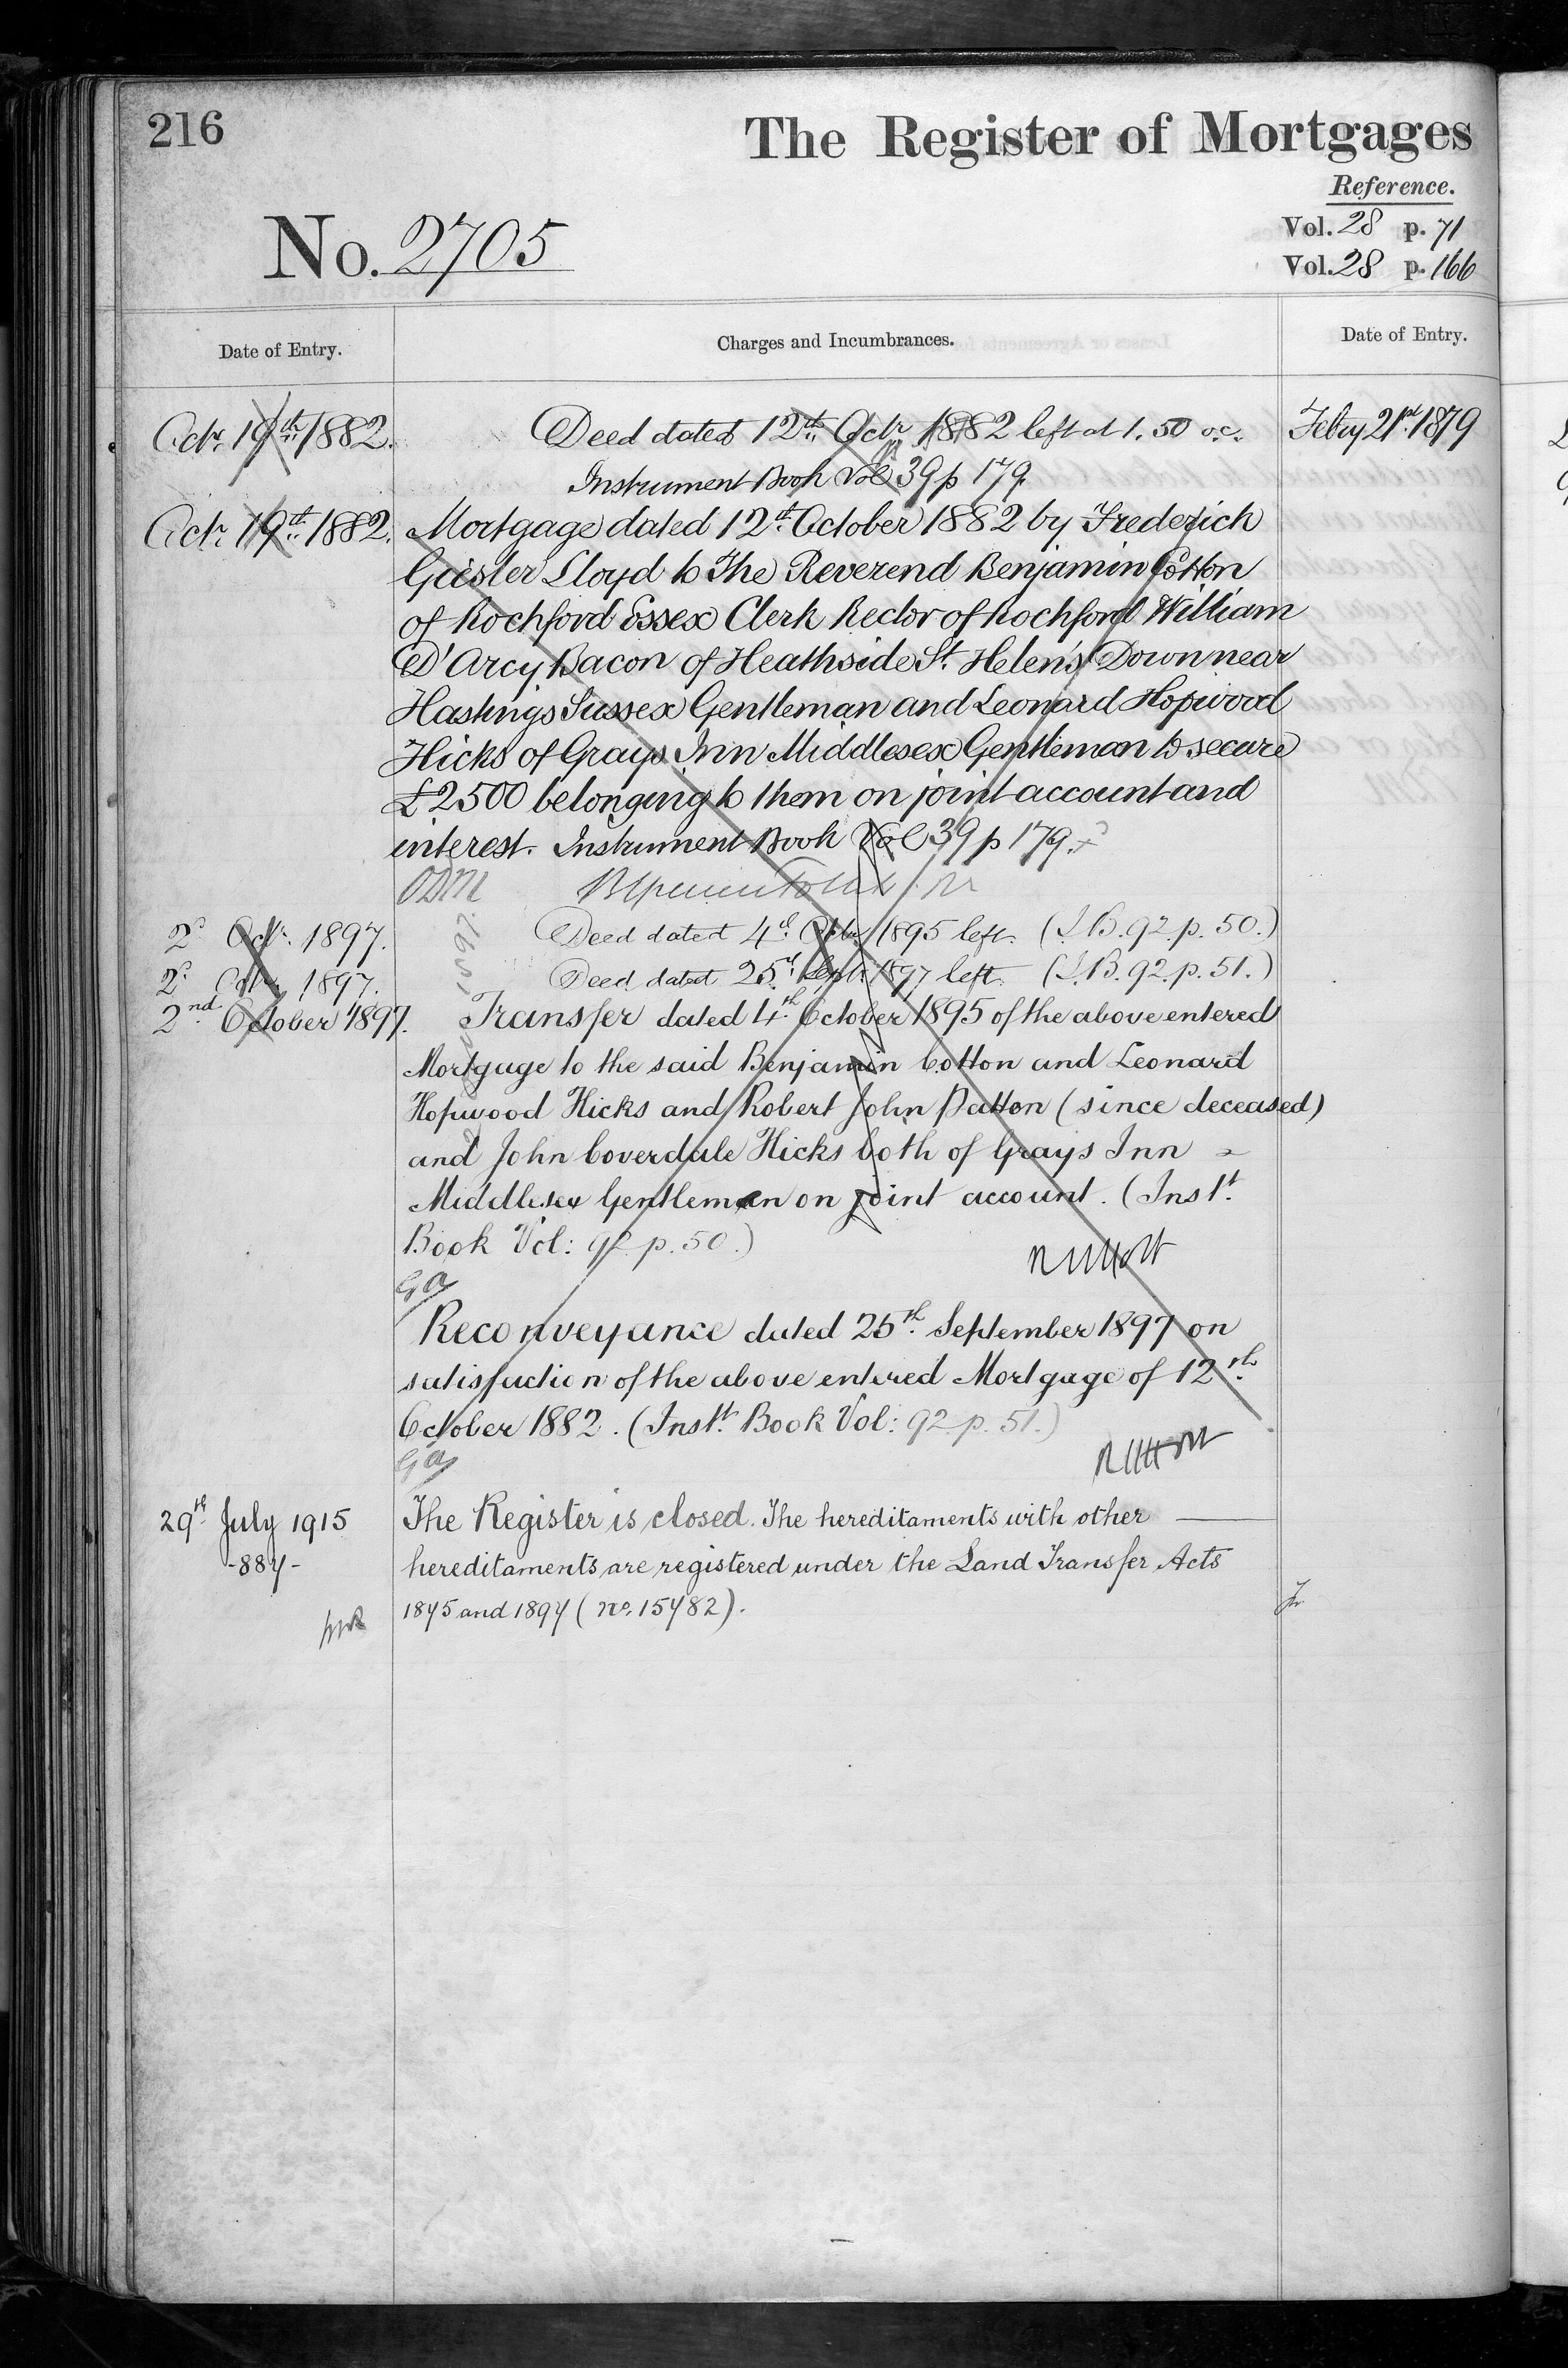 216
The Register of Mortgages
Reference.
Vol. 28 p. 71
No. 2705
Vol. 28 p. 166
Date of Entry.
Charges and Incumbrances.
Date of Entry.
Octr. 19th. 1882.
Deed dated 12th. Octr. 1882 left at 1.50 o.c.
Febry 21st. 1879
Instrument Book Vol 39 p 179
Octr. 19th. 1882.
Mortgage dated 12th. October 1882 by Frederich
Lloyd to The Reverend Benjamin Cotton
of Rochford Essex Clerk Rector of Rochford William
D'Arcy Bacon of Heathside St. Helen's Down near
Hastings Sussex Gentleman and Leonard Hopwood
Hicks of Grays Inn Middlesex Gentleman to secure
£2500 belonging to them on joint account and
interest. Instrument Book Vol 39 p 179.
2d Octr. 1897.
Deed dated 4th. Octbr. 1895 left. (I.B. 92. p. 50.)
2d. Octr. 1897.
Deed dated 25th. Septr. 1897 left. (I.B. 92. p. 51.)
2nd. October 1897.
Transfer dated 4th. October 1895 of the above entered
Mortgage to the said Benjamin Cotton and Leonard
Hopwood Hicks and Robert John Patton (since deceased)
and John Coverdale Hicks both of Grays Inn
Middlesex Gentlemen on joint account. (Instt.
Book Vol: 92 p. 50.)
Reconveyance dated 25th. September 1897 on
satisfaction of the above entered Mortgage of 12th.
October 1882. (Instt. Book Vol: 92 p. 51.)
29th. July 1915
The Register is closed. The hereditaments with other
-887-
hereditaments are registered under the Land Transfer Acts
1875 and 1897 (No. 15782).